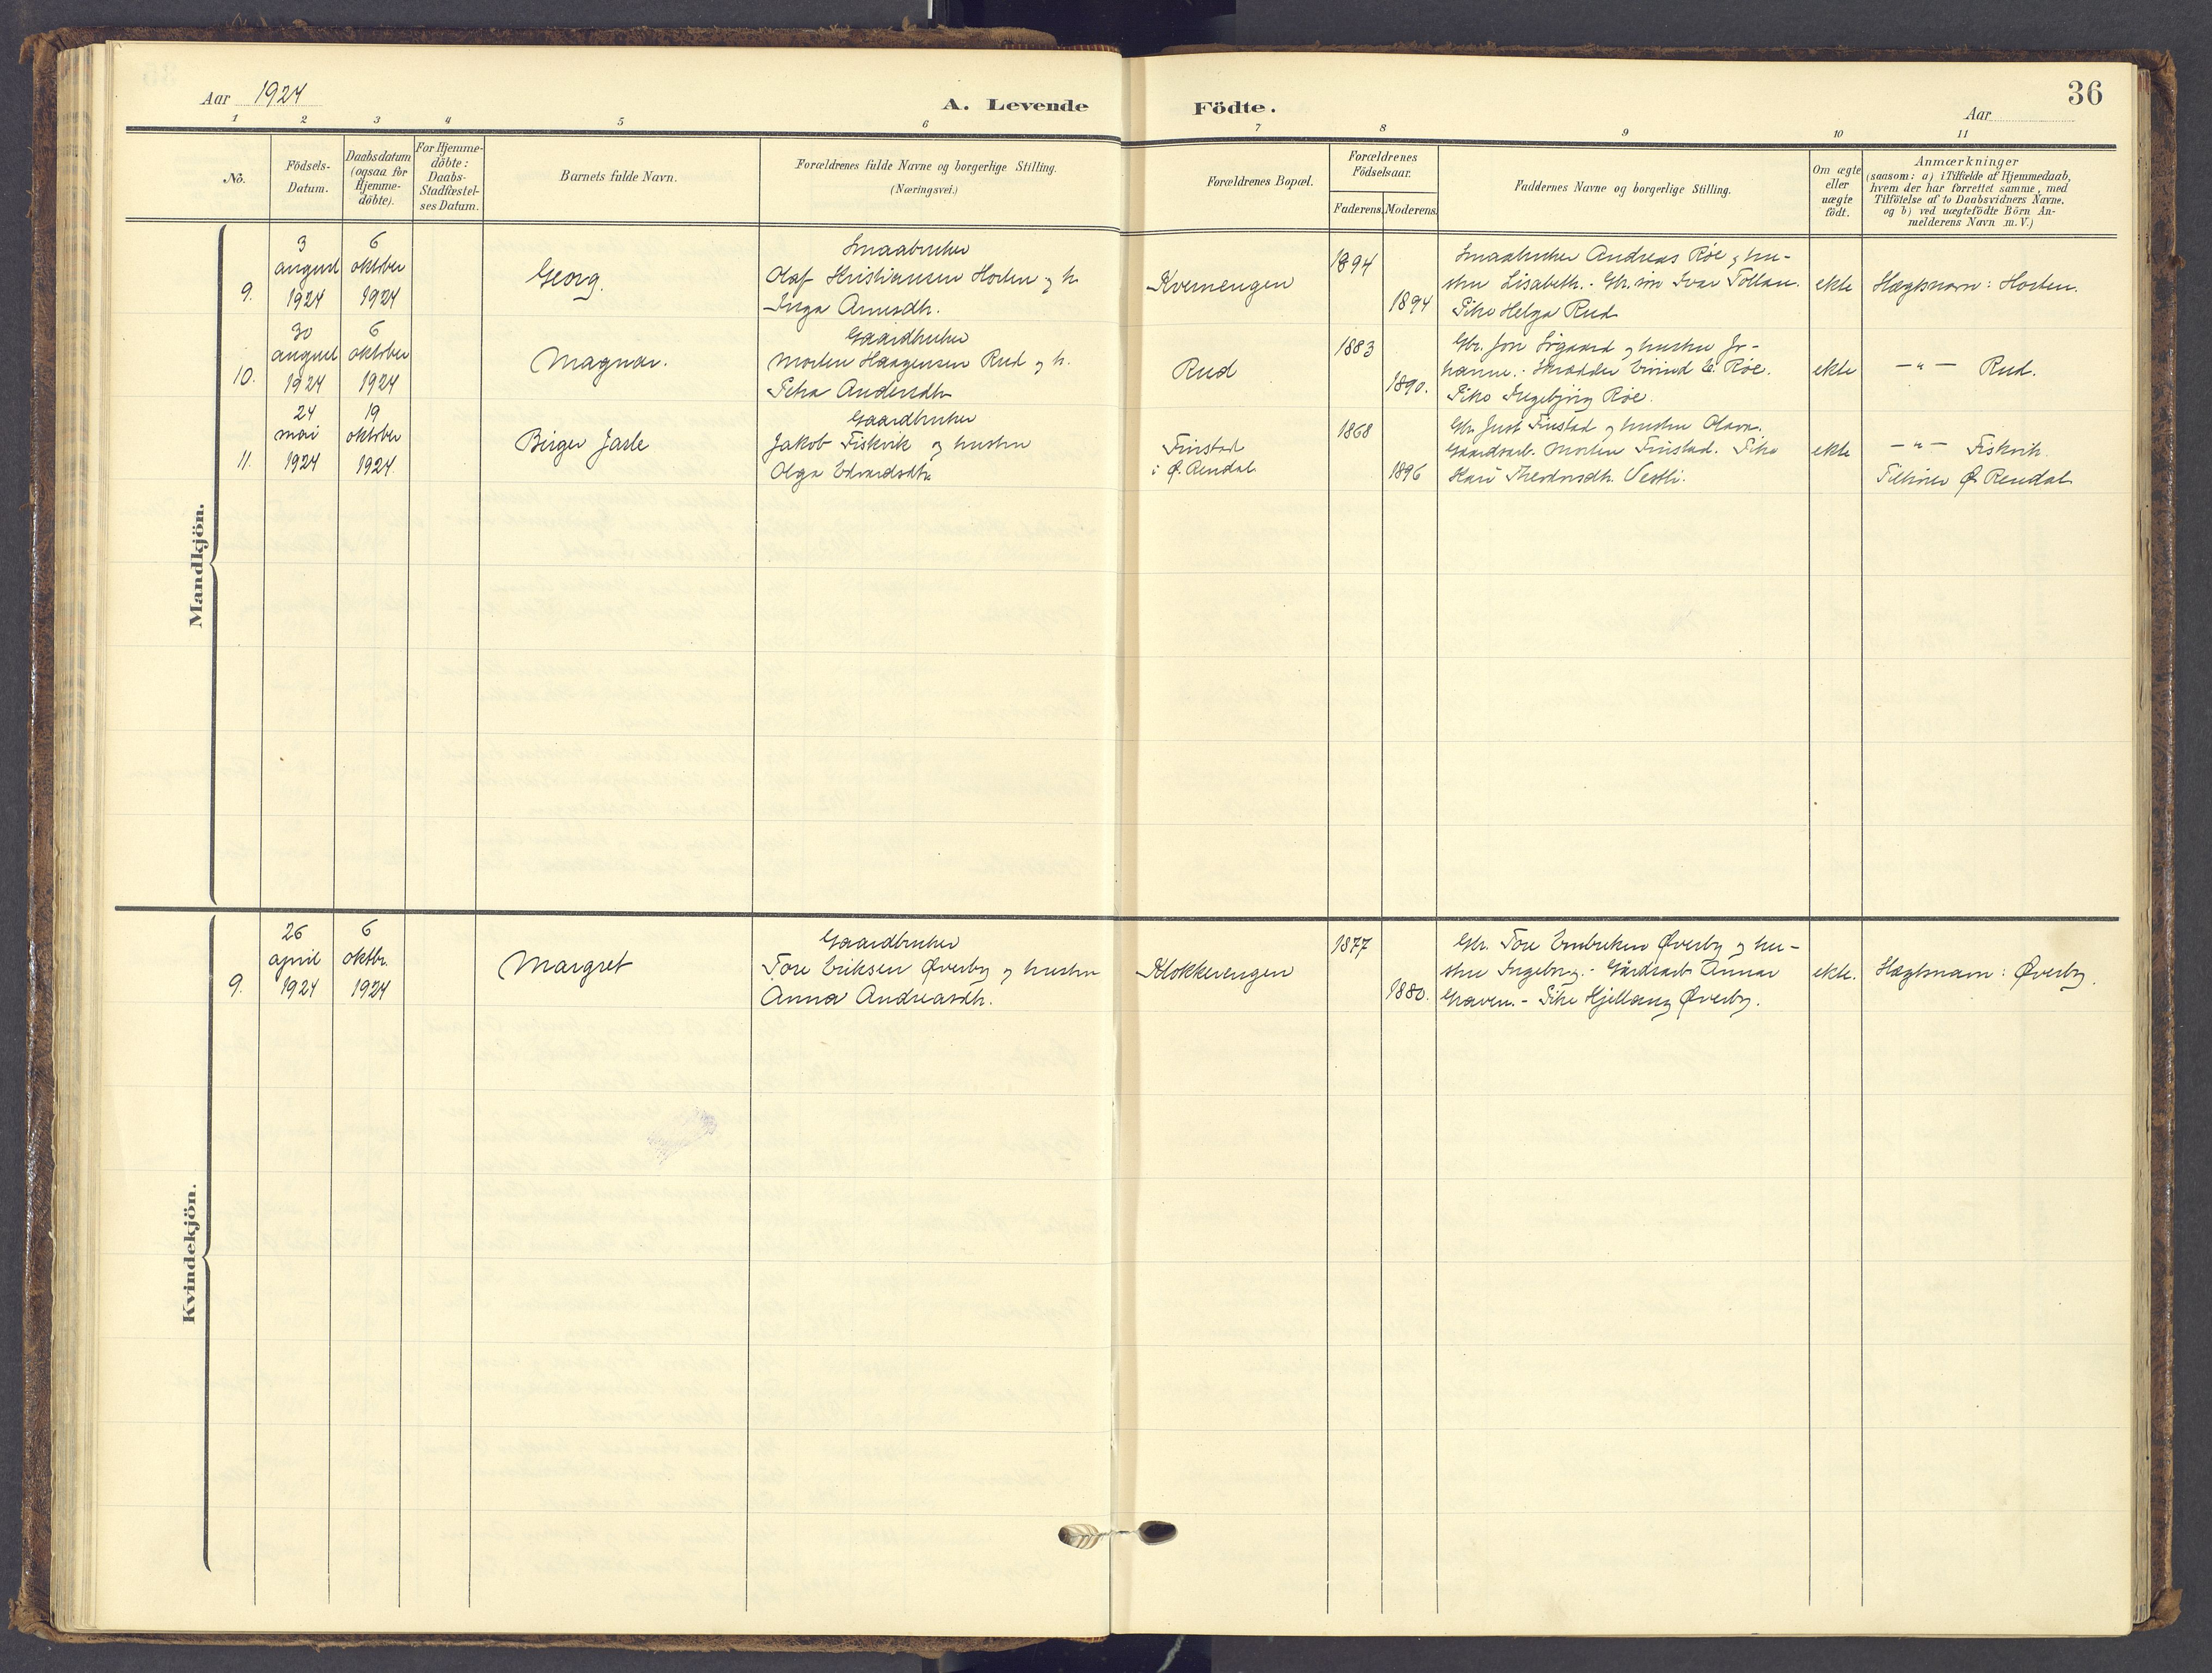 36
Aar 1924
A. Levende Födte.
Aar
1 2 3 4 5 6 7 8 9 10 11
No.
Födsels-
Datum.
Daabsdatum
(ogsaa for
Hjemme-
döbte).
For Hjemme-
döbte:
Daabs-
Stadfæstel-
ses Datum.
Barnets fulde Navn.
Forældrenes fulde Navne og borgerlige Stilling.
(Næringsvei.)
Forældrenes Bopæl.
Forældrenes
Födselsaar.
Faderens. Moderens.
Faddernes Navne og borgerlige Stilling.
Om ægte
eller
uægte
födt.
Anmærkninger
(saasom: a) i Tilfælde af Hjemmedaab,
hvem der har forrettet samme, med
Tilföielse af to Daabsvidners Navne,
og b) ved uægtefödte Börn An-
melderens Navn m. V.)
Mandkjön.
9.
3
august
1924
6
oktober
1924
Georg.
Smaabruker
Olaf Kristiansen Horten og h.
Inga Arnesdtr.
Kvernengen
1894
1894
Smaabruker Andreas Röe og hu-
stru Lisabeth. - Gbr. sön Ivar Tollan.
Pike Helga Rud
ekte
Slægtsnavn: Horten.
10.
30
august
1924
6
oktober
1924
Magnar.
Gaardbruker
Morten Haagensen Rud og h.
Petra Andersdtr.
Rud
1883
1890.
Gbr. Jon Sögaard og hustru Jo-
hanne. - Skrædder Eivind E. Röe.
Pike Ingebjörg Röe.
ekte
— " — Rud.
11.
24
mai
1924
19
oktober
1924
Birger Jarle
Gaardbruker
Jakob Fiskvik og hustru
Olga Edvardsdtr.
Finstad
i Ø. Rendal
1868
1896
Gbr. Just Finstad og hustru Olava.
Gaardsarb. Morten Finstad. Pike
Kari Theodorsdtr. Vestli.
ekte
— " — Fiskvik.
Tilhörer Ø. Rendal
Kvindekjön.
9.
26
april
1924
6
oktbr.
1924
Margret
Gaardbruker
Tore Eriksen Øverby og hustru
Anna Andreasdtr.
Klokkerengen
1877
1880.
Gbr. Tore Embriksen Øverby og hu-
stru Ingeborg. - Gårdsarb. Annar
Graven. - Pike Kjellaug Øverby.
ekte.
Slægtsnavn: Øverby.